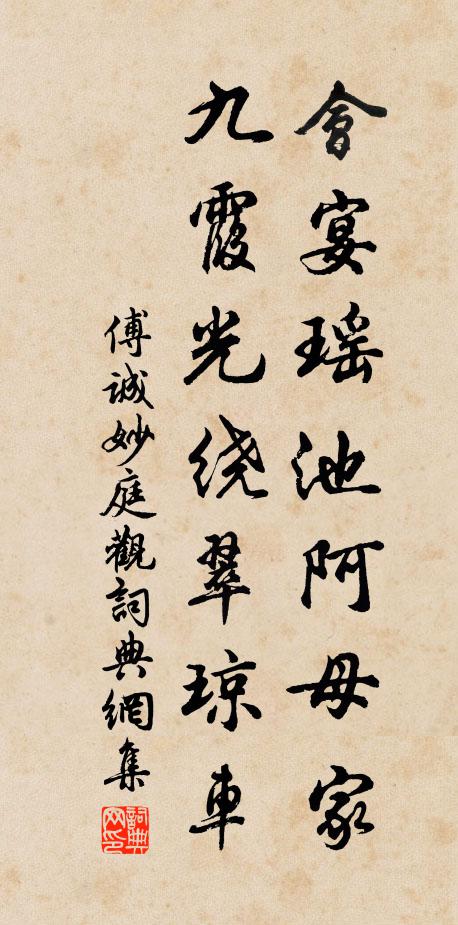 會宴瑶池阿母家
九霞光绕翠琼車
傅诚妙庭觀詞典網集
詞典網印